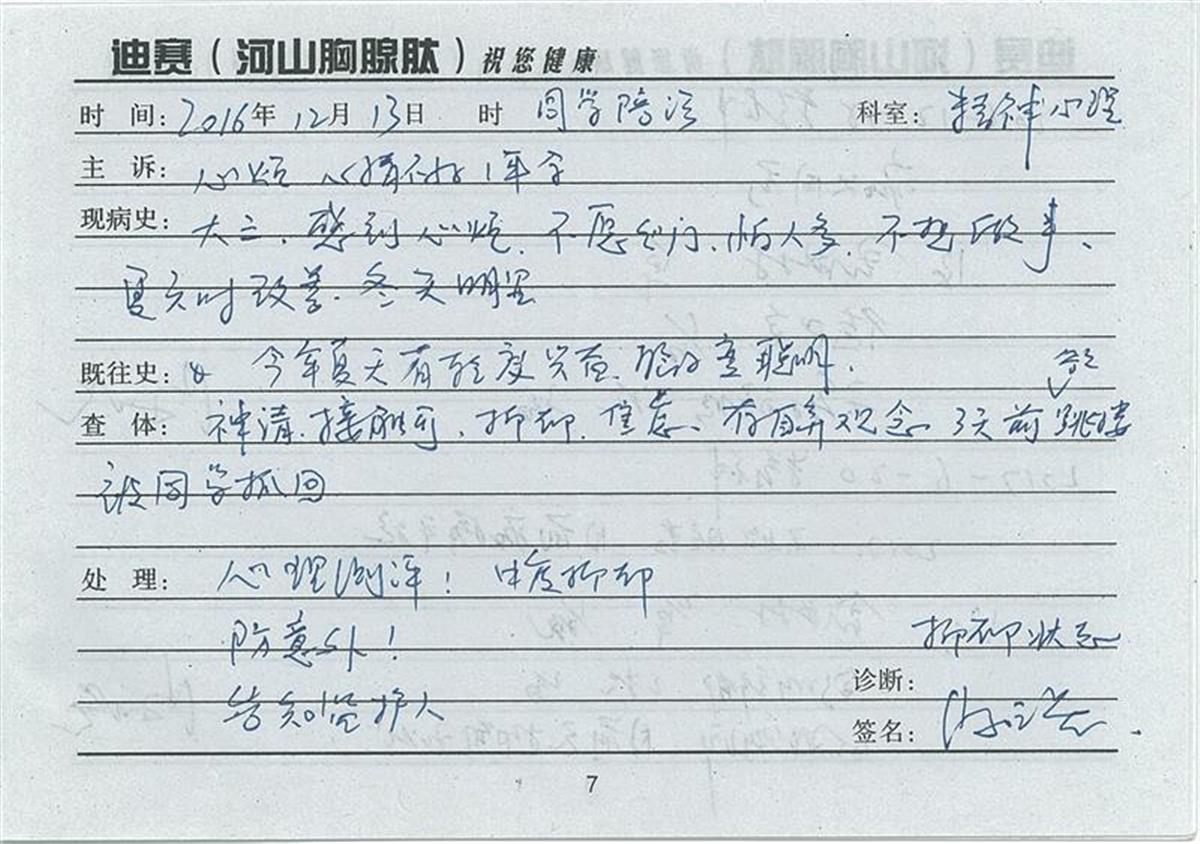 迪赛（河山胸腺肽）祝您健康
时 间：2016年 12月 13日 时 同学陪诊 科室：精神心理
主 诉：心烦 心情不好 1年余
现病史：大三、感到心烦、不愿出门、怕人多、不想做事、
夏天时改善、冬天明显
既往史： 今年夏天有轻度兴奋、脑子变聪明、
查 体：神清、接触可、抑郁、焦虑、有自弃观念 3天前 跳楼
被同学抓回
处 理：心理测评：中度抑郁
防意外！
抑郁状态
告知监护人
诊断：
签名：
7